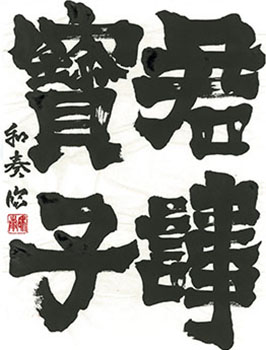 君諱
寶子
和奏臨